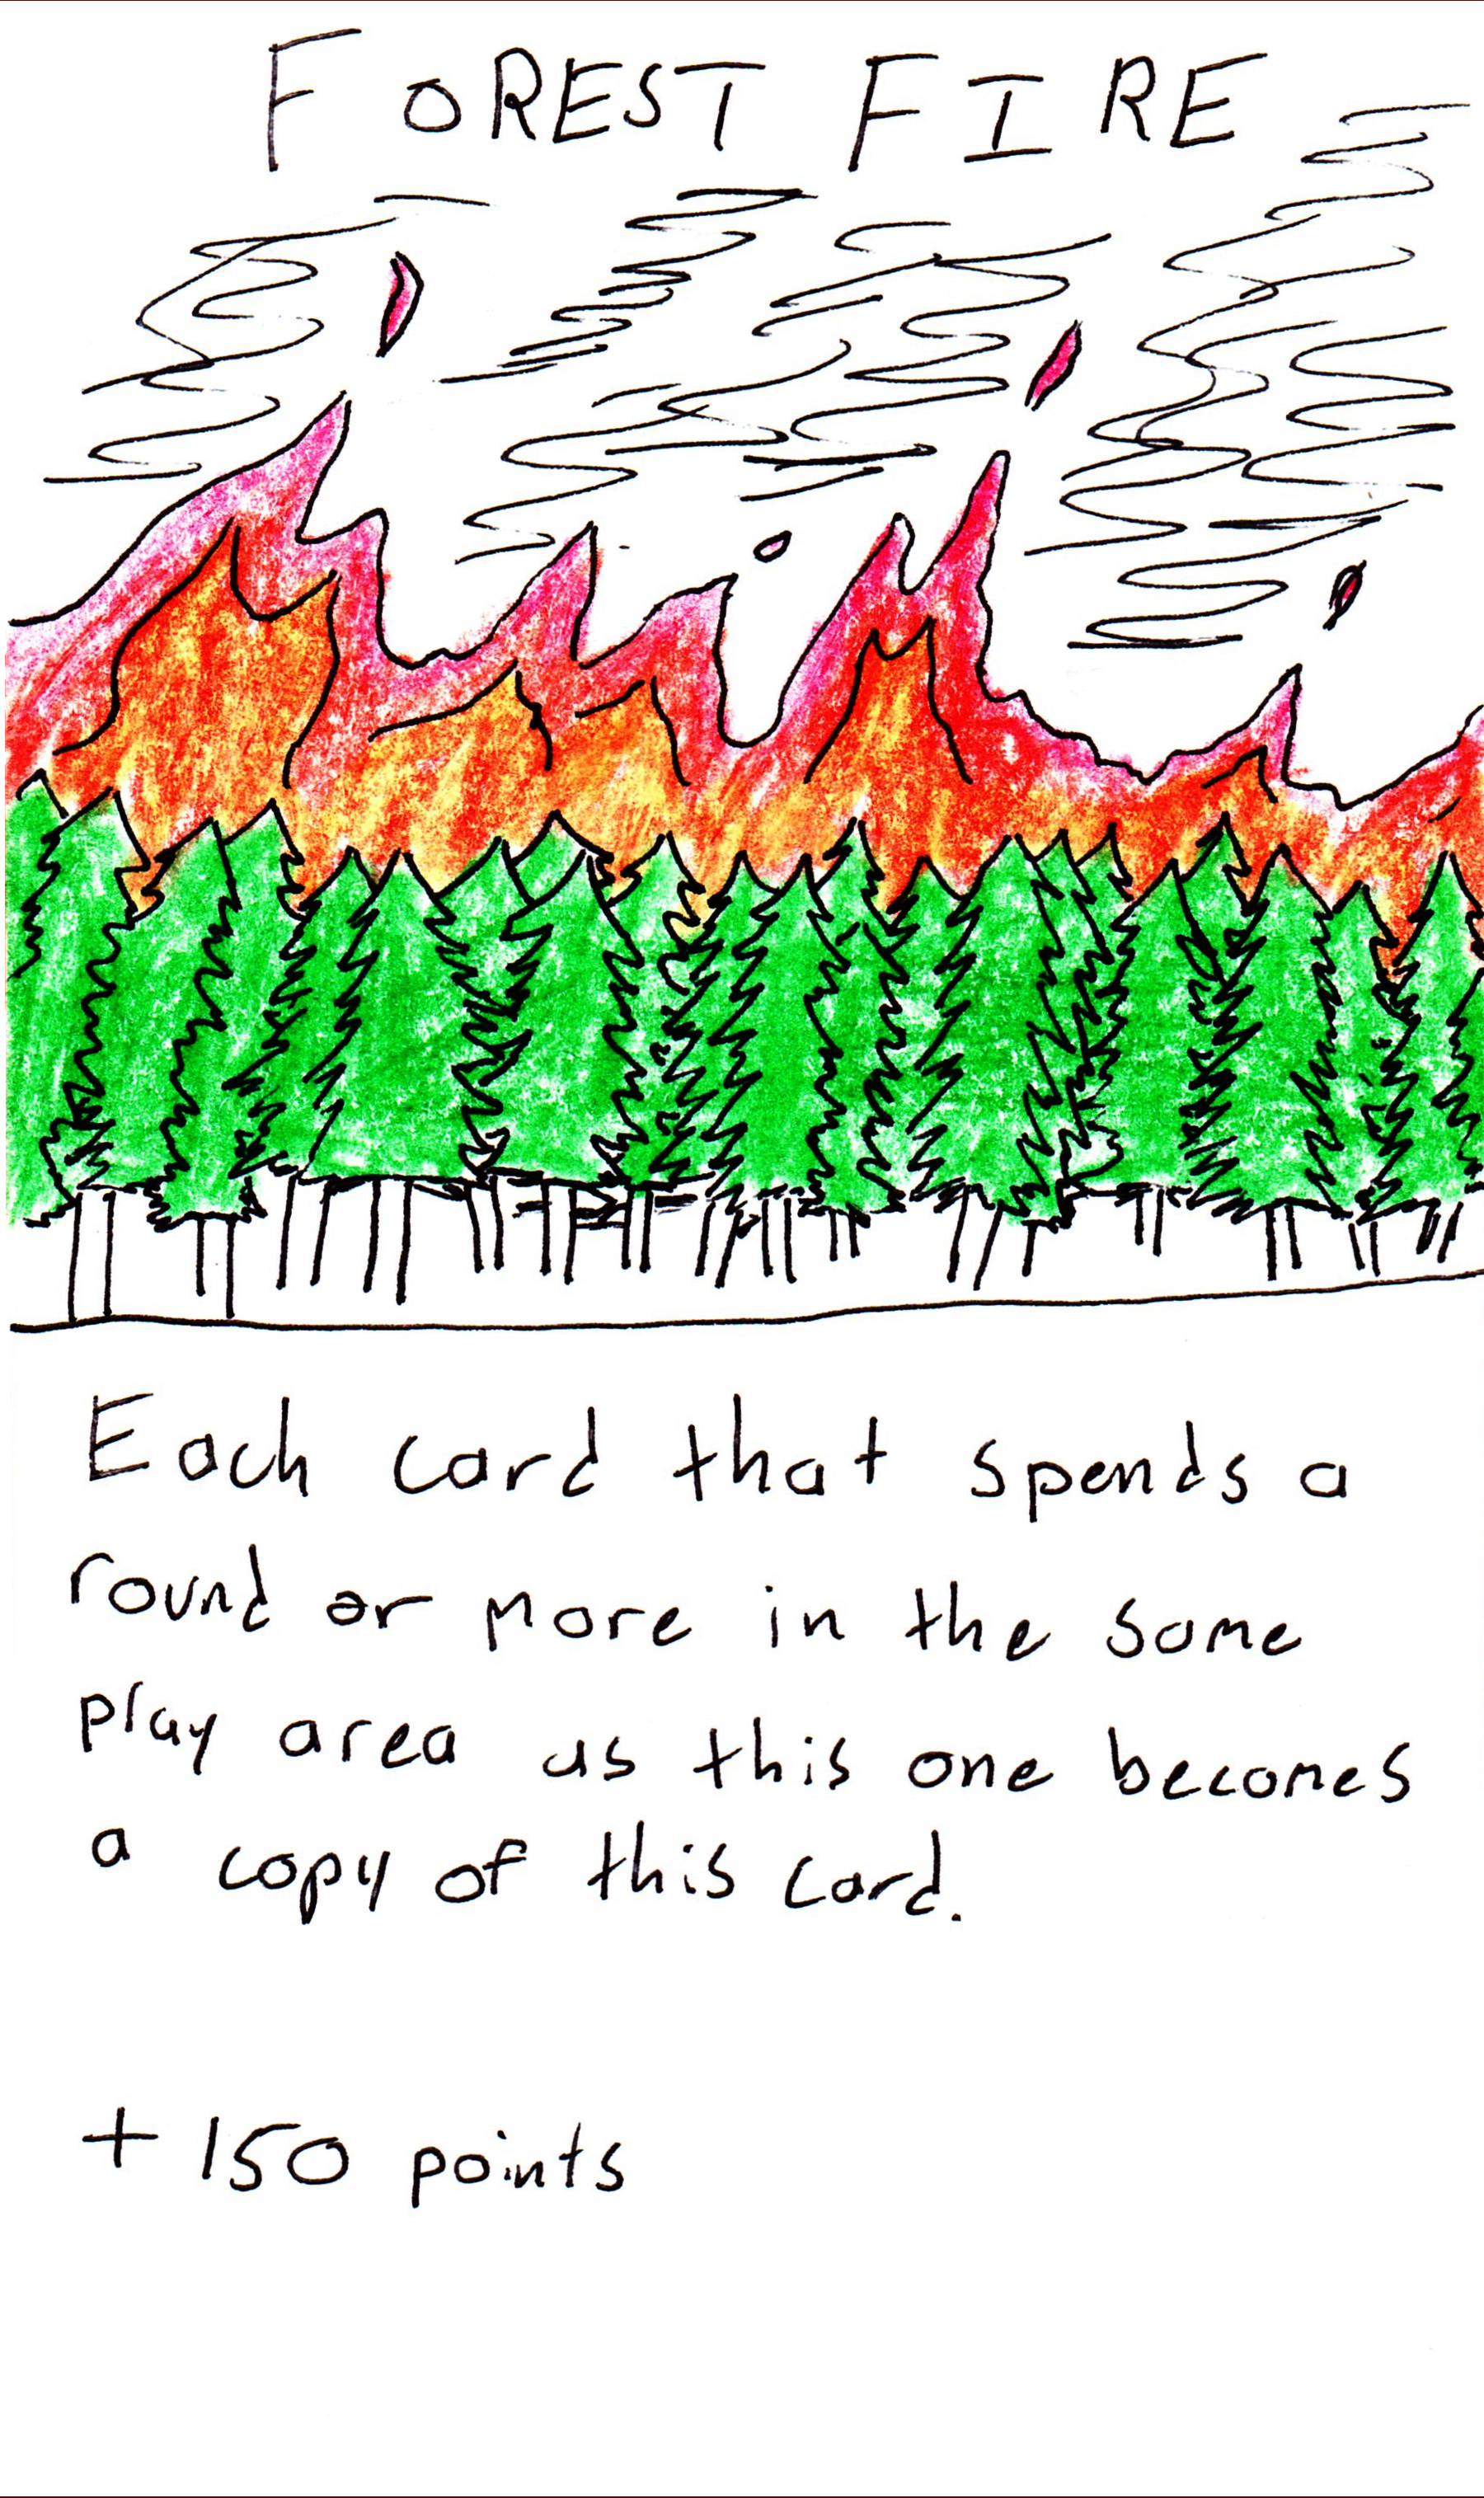 FOREST FIRE
Each card that spends a
round or more in the same
play area as this one becomes
a copy of this card.
+ 150 points